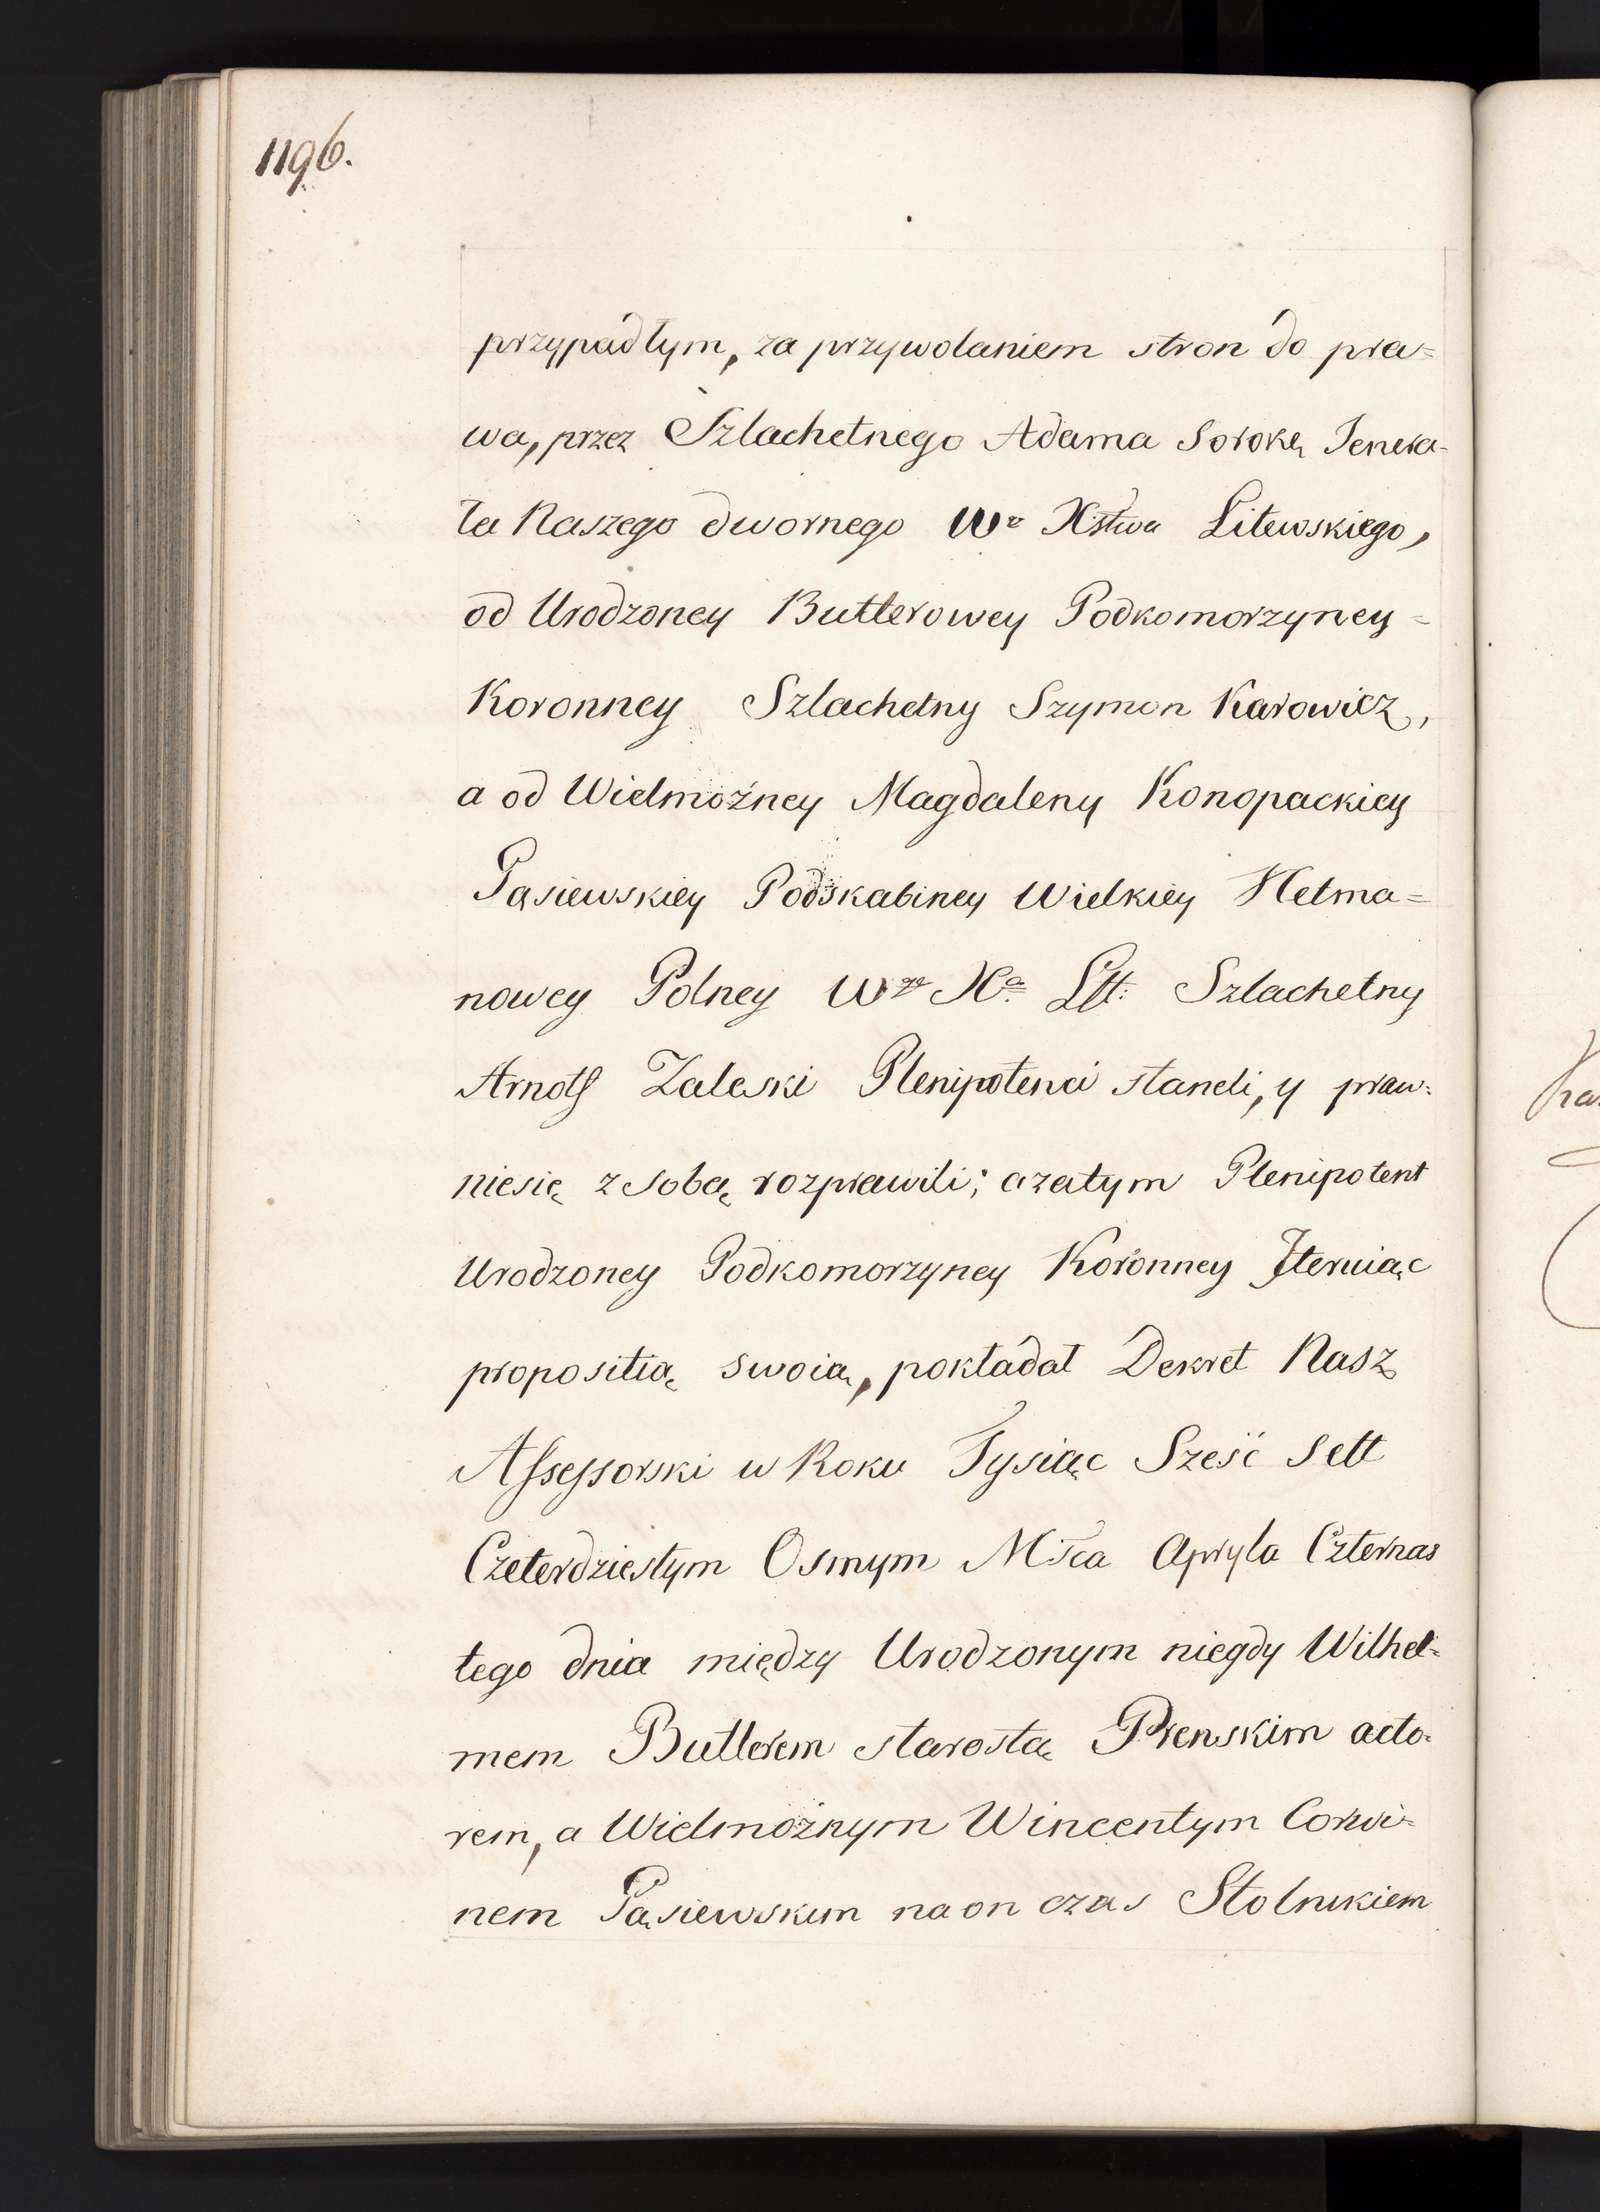 1196.
przypadłym, za przywolaniem stron do pra=
wa, przez Szlachetnego Adama Sorokę Jenera-
ła Naszego dwornego Wo Xstwa Litewskiego,
od Urodzoney Butlerowey Podkomorzyney=
Koronney Szlachetny Szymon Karowicz,
a od Wielmożney Magdaleny Konopackiey
Gąsiewskiey Podskabiney Wielkiey Hetma=
nowey Polney Wgo Xa Litt: Szlachetny
Arnolf Zaleski Plenipotenci staneli, y praw=
niesię z sobą rozprawili; azatym Plenipotent
Urodzoney Podkomorzyney Koronney Iteruiąc
propositią swoią, pokładał Dekret Nasz
Assessorski w Roku Tysiąc Sześć Sett
Czeterdziestym Osmym Mśca Apryla Czternas
tego dnia między Urodzonym niegdy Wilhel=
mem Butlerem starostą Prenskim acto=
rem, a Wielmożnym Wincentym Corwi=
nem Gąsiewskim na on czas Stolnikiem
ha